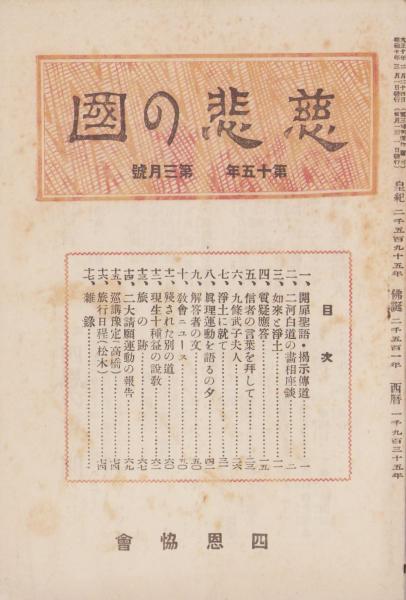 慈悲の國
第十五年 第三月號
目次
一、開扉聖語・揭示傳道……一
二、二河白道の畵相座談……二
三、如來と淨土……一一
四、質疑應答……一五
五、信者の言葉を拜して……二三
六、九條武子夫人……二六
七、淨土に就て……三一
八、眞理運動を語るの夕……四二
九、解答者の文……五〇
十、敎會ニュース
十一、殘された別の道……六〇
十二、現生十種益の說敎……六二
十三、旅の跡……六七
十四、二大請願運動の報告……六九
十五、巡講豫定(高橋)
十六、旅行日程(松木)……七四
十七、雜錄
四恩協會
皇紀 二千五百九十五年 佛誕 二千五百一年 西曆 一千九百三十五年